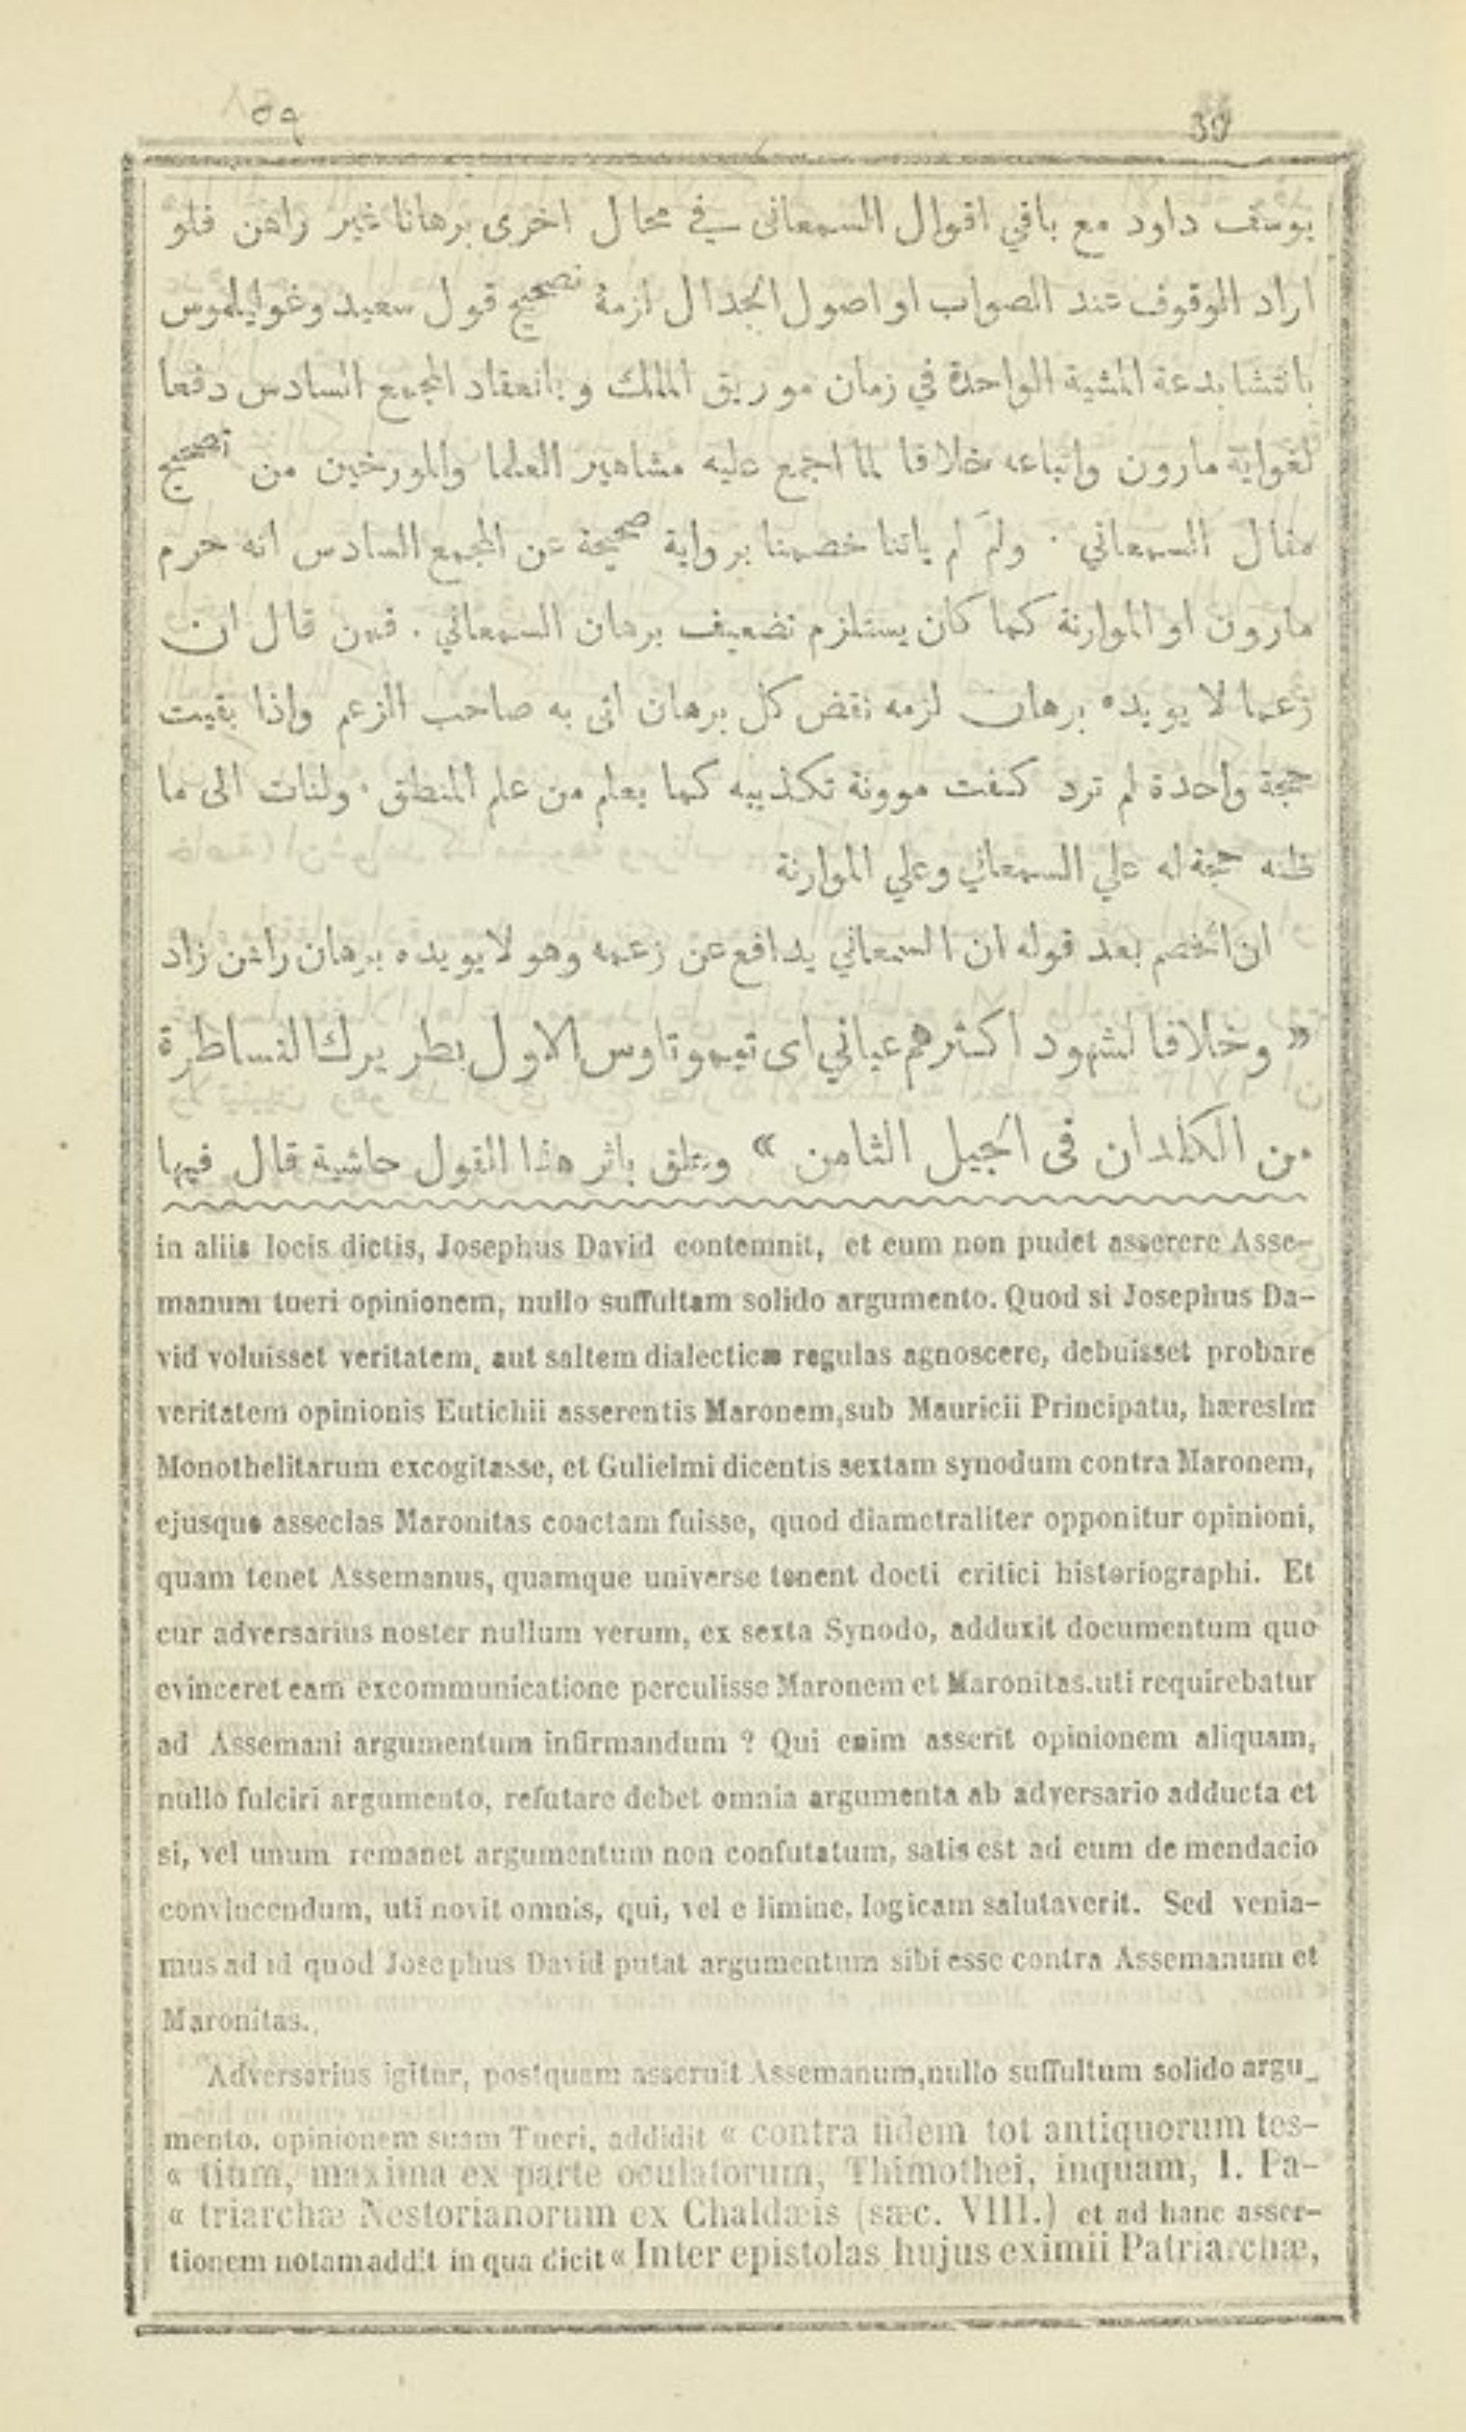 ٥٩ 39
يوسف داود مع باقي اقوال السمعانى في محال اخرى برهانا غير راهن فلو
اراد الوقوف عند الصواب او اصول الجدال لزمة تصحيح قول سعيد وغوليلموس
بانتشا بدعة المشية الواحدة في زمان موريق الملك وبانعقاد المجمع السادس دفعا
لغواية مارون واتباعه خلافا لما اجمع عليه مشاهير العلما والمورخين من تصحيح
مقال السمعاني . ولمَ لم ياتنا خصمنا برواية صحيحة عن المجمع السادس انه حرم
مارون او الموارنة كما كان يستلزم تضعيف برهان السمعاني . فمن قال ان
زعما لا يويده برهان لزمه نقض كل برهان اتى به صاحب الزعم واذا بقيت
حجة واحدة لم ترد كفت موونة تكذيبه كما يعلم من علم المنطق . ولنات الى ما
ظنه حجة له علي السمعاني وعلي الموارنة
ان الخصم بعد قوله ان السمعاني يدافع عن زعمه وهو لا يويده برهان راهن زاد
» وخلافا لشهود اكثرهم عياني اى تيموتاوس الاول بطريرك النساطرة
من الكلدان فى الجيل الثامن « وعلق باثر هذا القول حاشية قال فيها
in aliis locis dictis, Josephus David contemnit, et eum non pudet asserere Asse-
manum tueri opinionem, nullo suffultam solido argumento. Quod si Josephus Da-
vid voluisset veritatem, aut saltem dialecticæ regulas agnoscere, debuisset probare
veritatem opinionis Eutichii asserentis Maronem, sub Mauricii Principatu, hæresim
Monothelitarum excogitasse, et Gulielmi dicentis sextam synodum contra Maronem,
ejusque asseclas Maronitas coactam fuisse, quod diametraliter opponitur opinioni,
quam tenet Assemanus, quamque universe tenent docti critici historiographi. Et
cur adversarius noster nullum verum, ex sexta Synodo, adduxit documentum quo
evinceret eam excommunicatione perculisse Maronem et Maronitas. uti requirebatur
ad Assemani argumentum infirmandum ? Qui enim asserit opinionem aliquam,
nullo fulciri argumento, refutare debet omnia argumenta ab adversario adducta et
si, vel unum remanet argumentum non confutatum, satis est ad eum de mendacio
convincendum, uti novit omnis, qui, vel e limine, logicam salutaverit. Sed venia-
mus ad id quod Josephus David putat argumentum sibi esse contra Assemanum et
Maronitas.
Adversarius igitur, postquam asseruit Assemanum, nullo suffultum solido argu-
mento, opinionem suam Tueri, addidit « contra fidem tot antiquorum tes-
« tium, maxima ex parte oculatorum, Thimothei, inquam, I. Pa-
« triarchæ Nestorianorum ex Chaldæis (sæc. VIII.) et ad hanc asser-
tionem notam addit in qua dicit « Inter epistolas hujus eximii Patriarchæ,